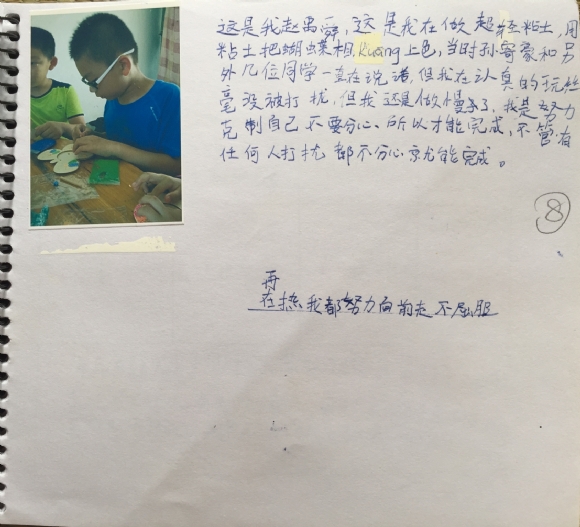 这是我赵禹舜,这是我在做超轻粘土,用
粘土把蝴蝶相kuang上色,当时孙蒙和另
外几位同学一直在说话,但我在认真的玩丝
毫没被打扰,但我还是做慢了,我是努力
克制自己不要分心、所以才能完成,不管有
任何人打扰都不分心京尤能完成。
8
再
在热我都努力向前走不屈服